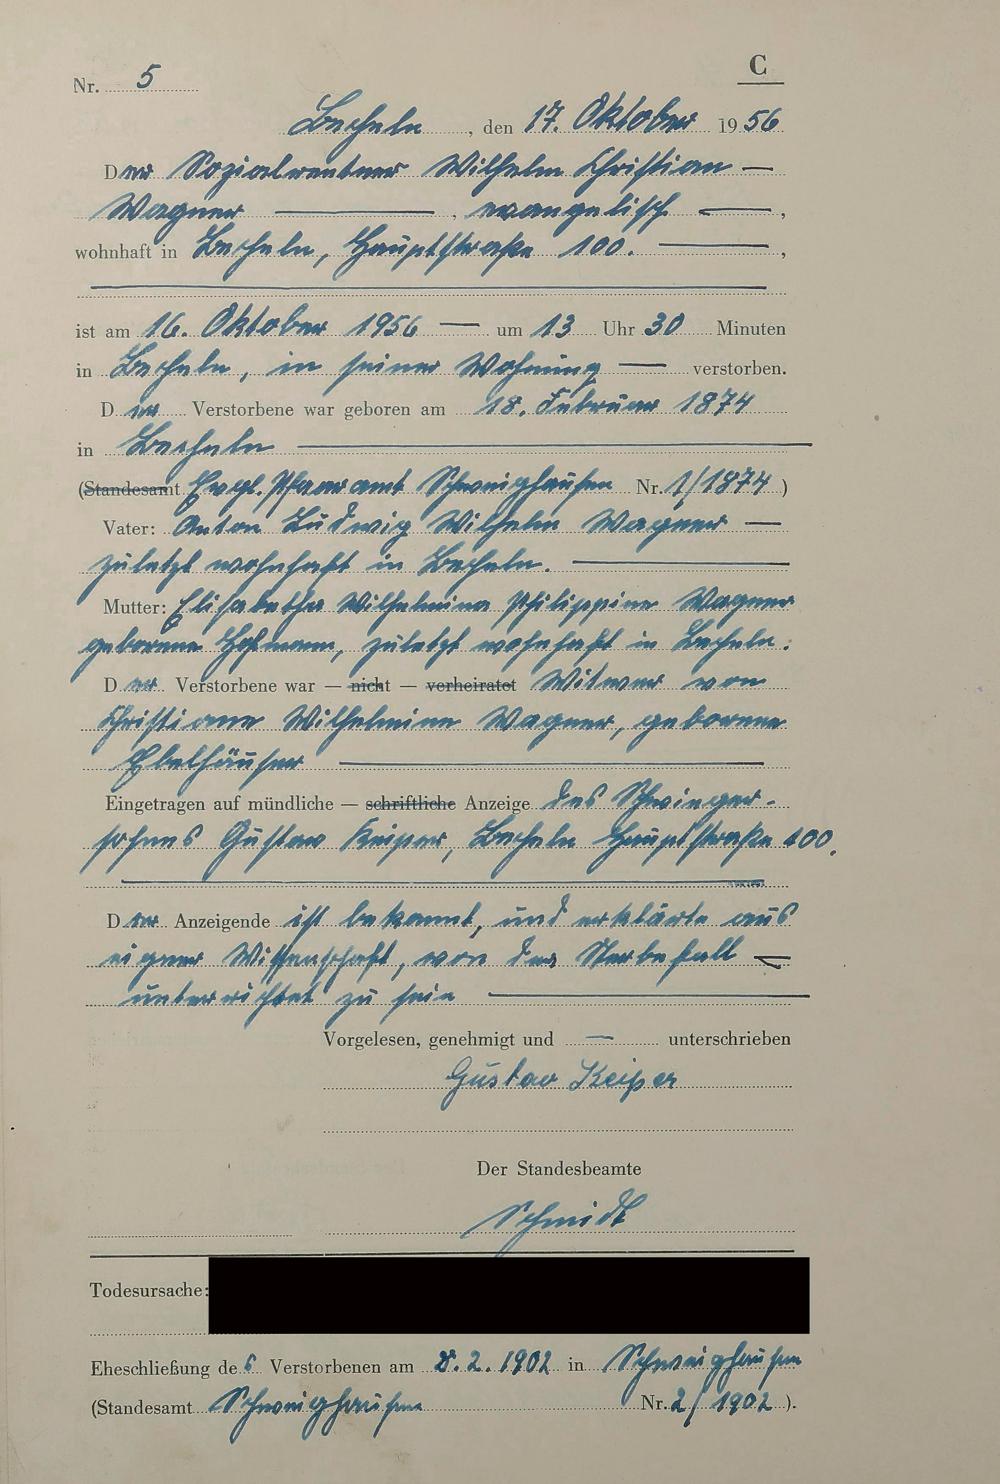 C
Nr. 5
Becheln, den 17. Oktober 1956
Der Sozialrentner Wilhelm Christian —
Wagner —, evangelisch —,
wohnhaft in Becheln, Hauptstraße 100. —,
ist am 16. Oktober 1956 — um 13 Uhr 30 Minuten
in Becheln, in seiner Wohnung — verstorben.
Der Verstorbene war geboren am 18. Februar 1874
in Becheln —
(Standesamt Evgl. Pfarramt Schweighausen Nr. 1/1874)
Vater: Anton Ludwig Wilhelm Wagner —
zuletzt wohnhaft in Becheln. —
Mutter: Elisabetha Wilhelmina Philippine Wagner
geborene Hofmann, zuletzt wohnhaft in Becheln.
Der Verstorbene war — nicht — verheiratet Witwer von
Christiane Wilhelmine Wagner, geborene
Ebelhäuser —
Eingetragen auf mündliche — schriftliche Anzeige des Schwieger-
sohnes Gustav Keiper, Becheln Hauptstraße 100.
Der Anzeigende ist bekannt, und erklärte aus
eigner Wissenschaft, von dem Sterbefall —
unterrichtet zu sein —
Vorgelesen, genehmigt und — unterschrieben
Gustav Keiper
Der Standesbeamte
Schmidt
Todesursache:
Eheschließung des Verstorbenen am 8.2.1902 in Schweighausen
(Standesamt Schweighausen Nr. 2/1902).